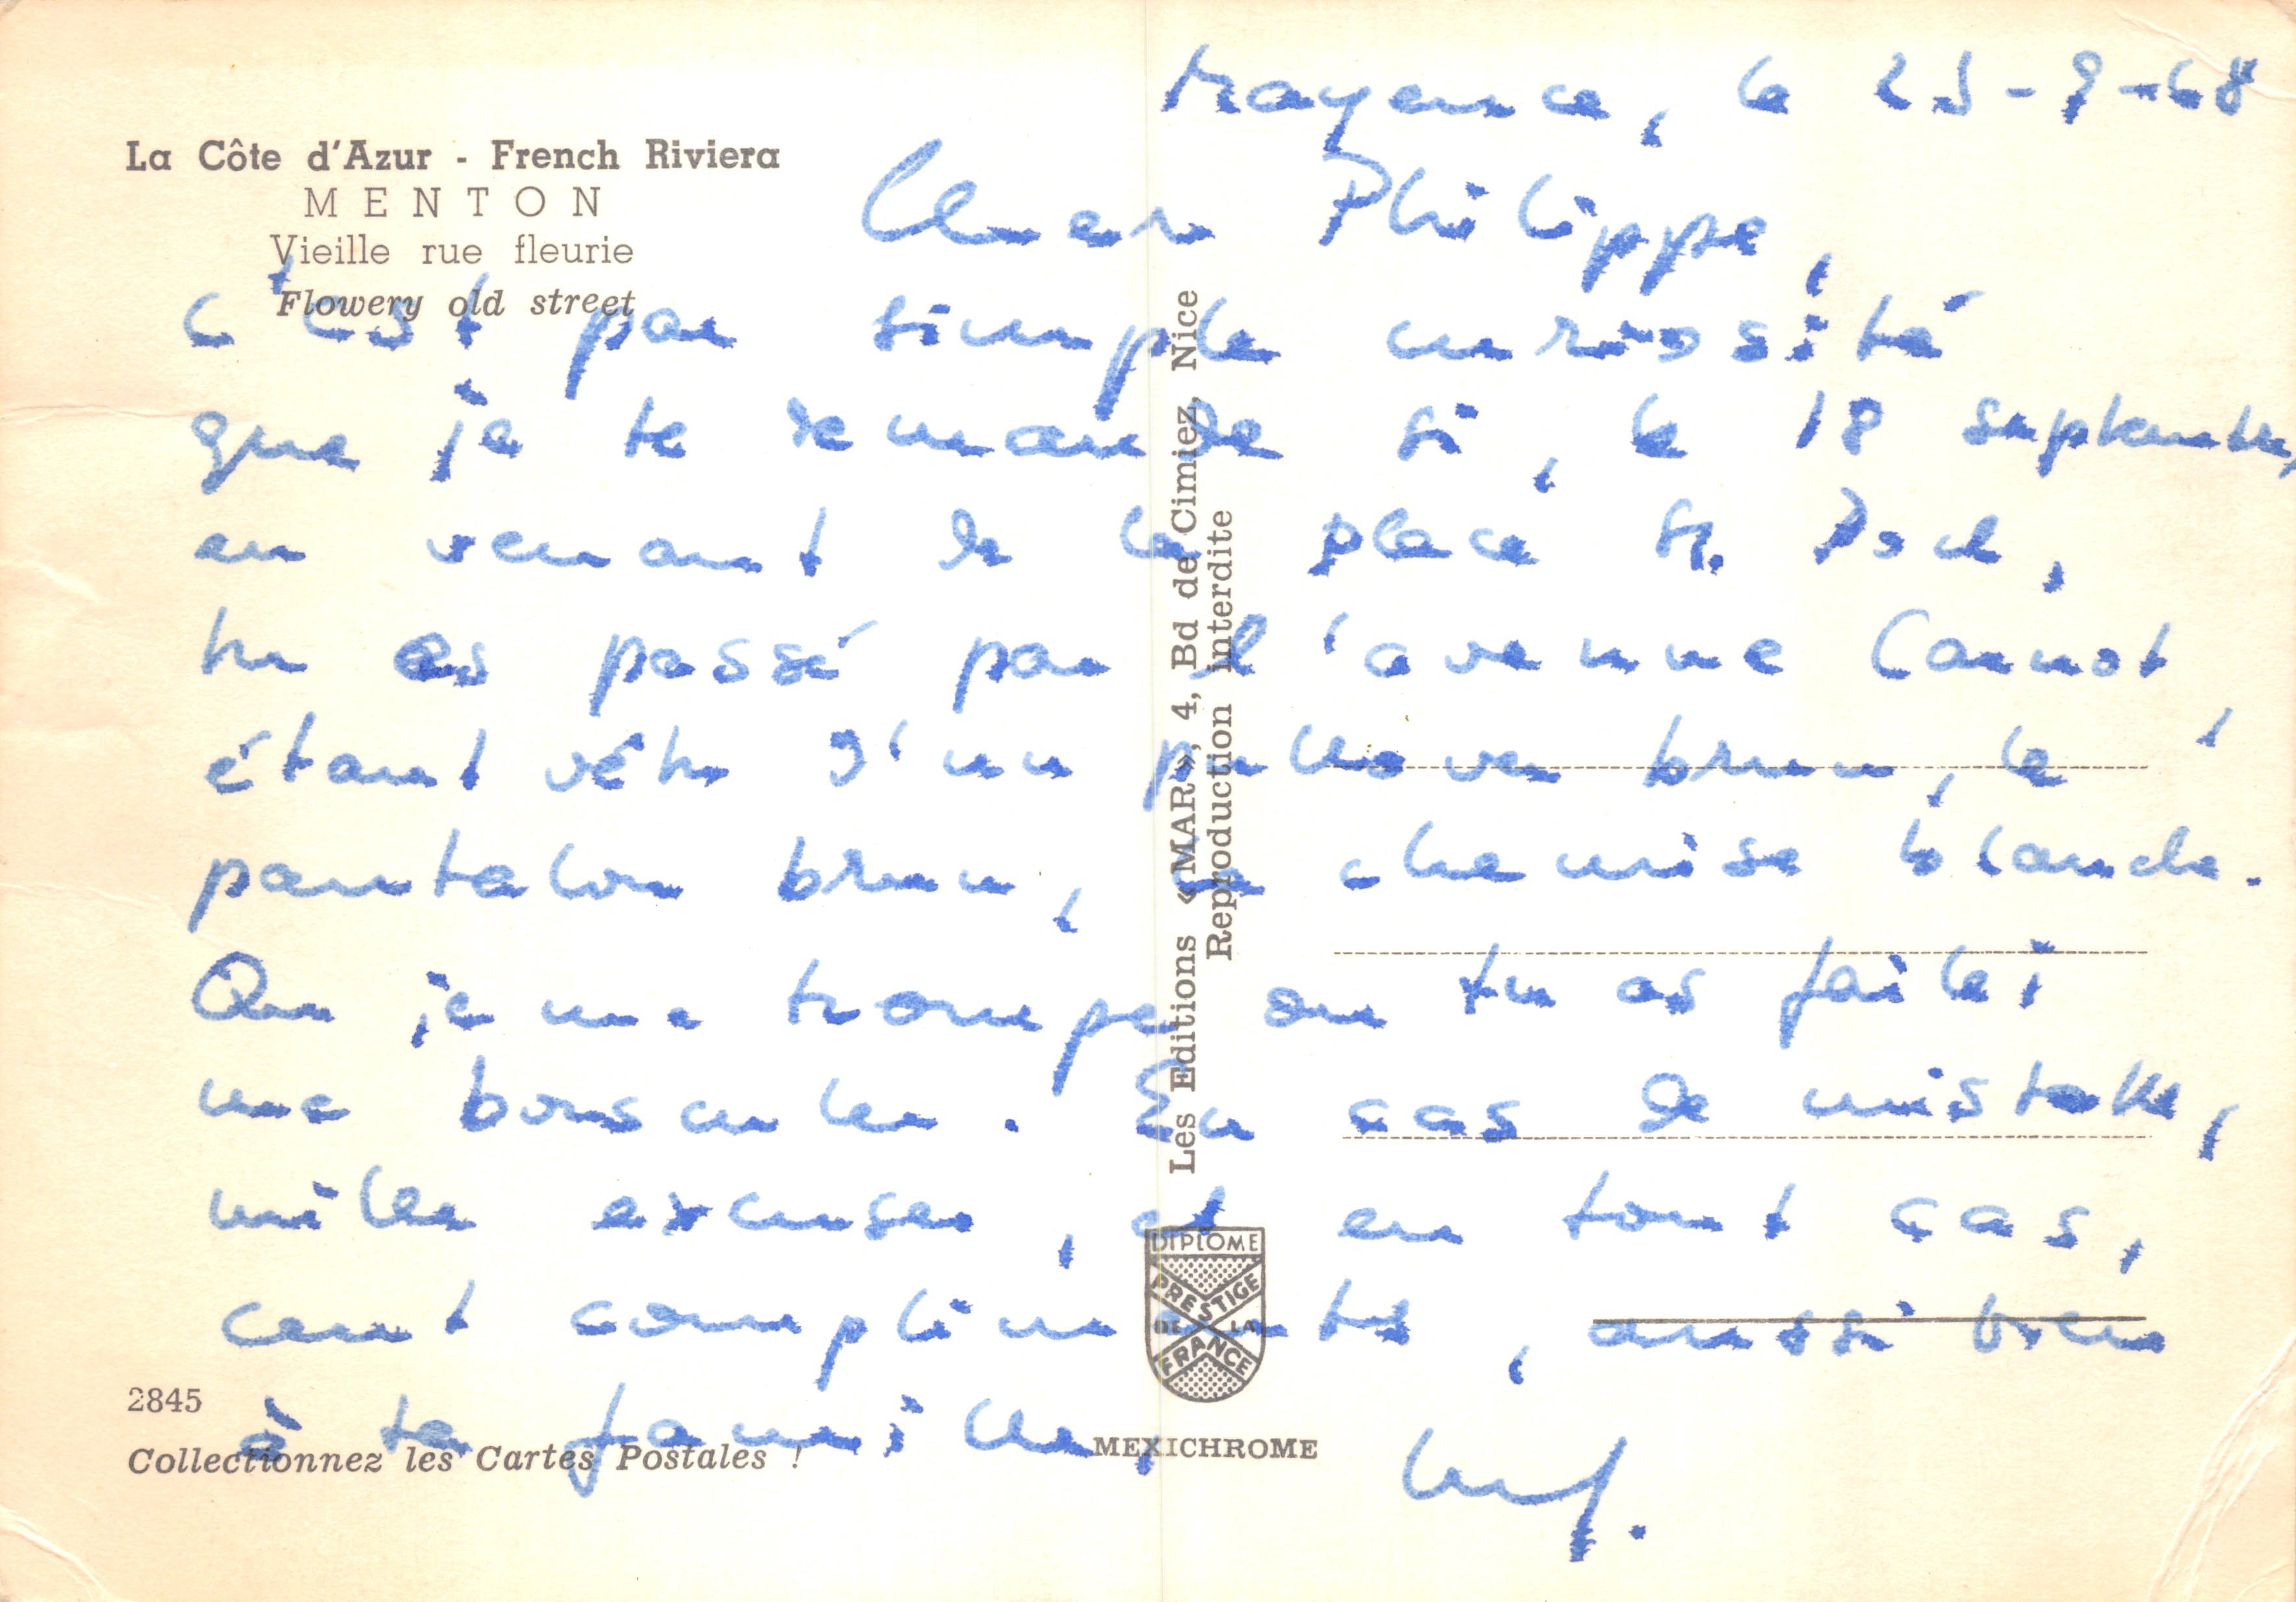 La Côte d'Azur - French Riviera
MENTON
Vieille rue fleurie
Flowery old street
Mayence, le 25-9-68
Cher Philippe,
C'est par simple curiosité
que je te demande si, le 18 septembre,
en venant de la place St. Roch,
tu es passé par l'avenue Carnot,
étant vêtu d'un pullover brun, le
pantalon brun, la chemise blanche.
Ou je me trompe ou tu as failli
me bousculer. En cas de mistake,
mille excuses, et en tout cas,
cent compliments, aussi bien
à ta famille,
Les Editions «MAR», 4, Bd de Cimiez, Nice
Reproduction interdite
DIPLOME
PRESTIGE
DE LA
FRANCE
2845
Collectionnez les Cartes Postales !
MEXICHROME